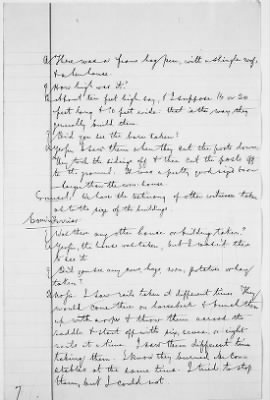 A There was a frame hog pen, with a shingle roof,
& a corn house.
Q How high was it?
A About ten feet high say, (I suppose 15 or 20
feet long & 10 feet wide: that is the way they
generally build them.
Q Did you see the house taken?
A Yessir, I saw them when they cut the posts down.
They took the sidings off & then cut the posts off
to the ground. It was a pretty good sized barn
larger than the corn-house
Counsel, We have the testimony of other witnesses taken
as to the size of the buildings.
Commissioner
Q Was there any other house or building taken?
A Yessir, the house was taken, but I wasn't there
to see it
Q Did you see any corn, hogs, potatoes or hay
taken?
A Nosir. I saw rails taken at different times They
would come there on horseback & bundle them
up with a rope & throw them across the
saddle & start off with six, seven, or eight
rails at a time. I saw them different times
taking them. I know they burned
at the same time. I tried to stop
them, but I could not.
7